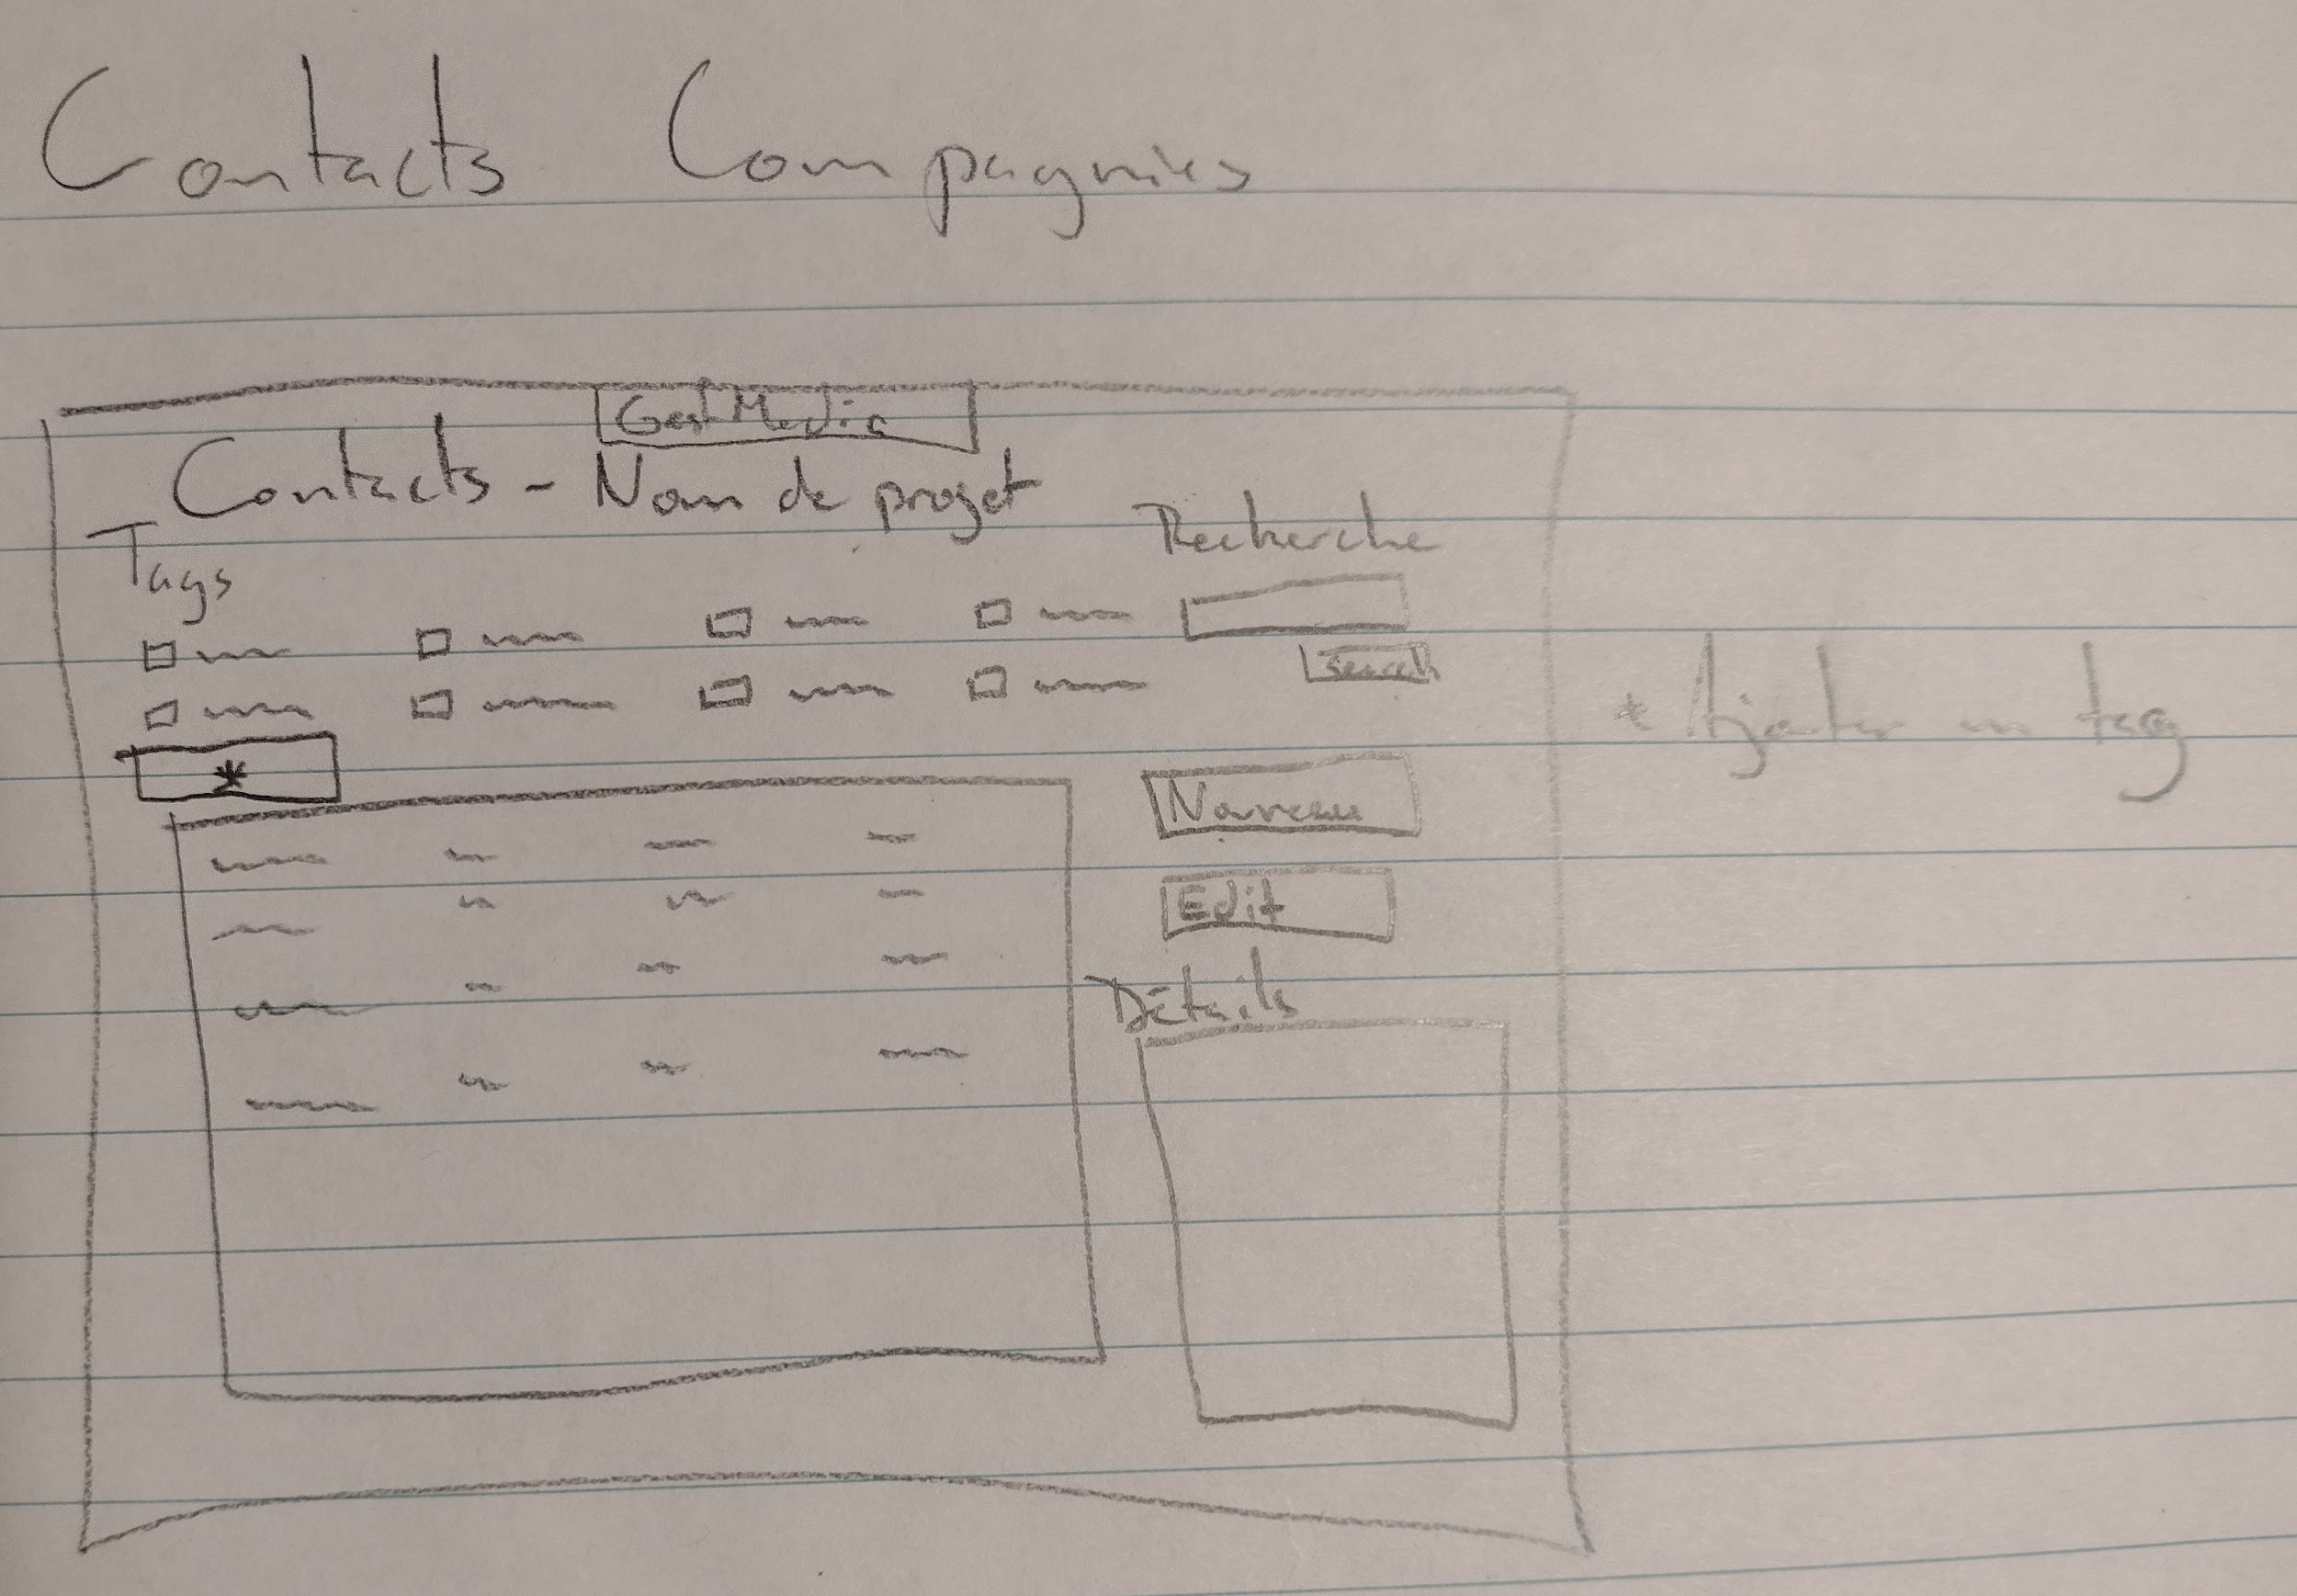 Contacts Compagnies
GestMedia
Contacts - Nom de projet
Tags
Recherche
Search
*
* Ajouter un tag
Nouveau
Edit
Détails